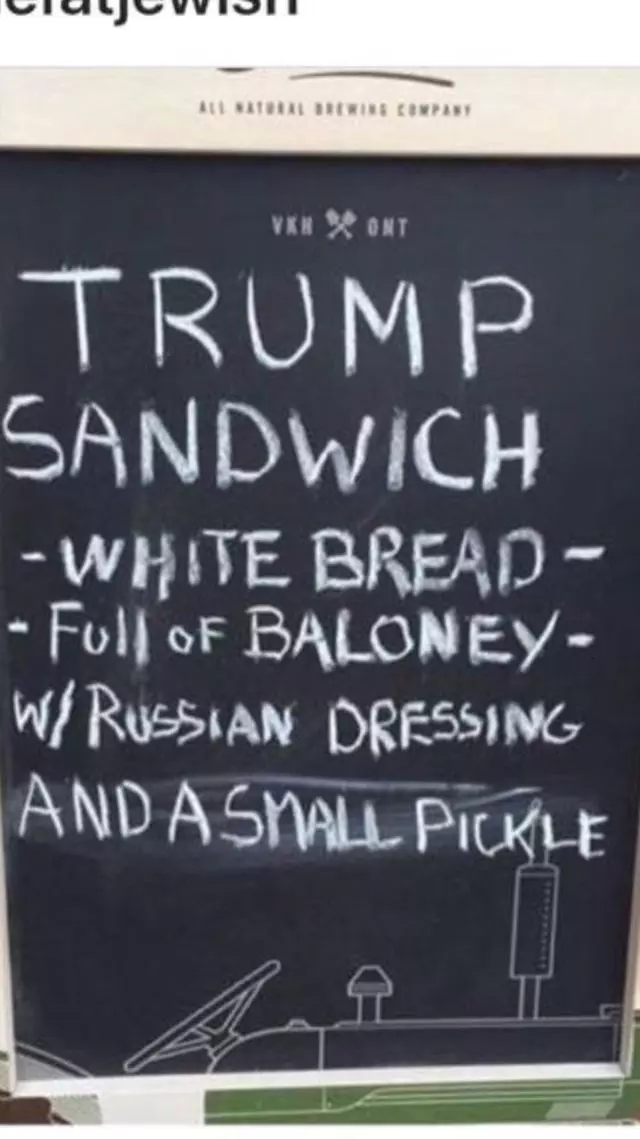 ALL NATURAL BREWING COMPANY
VKH ONT
TRUMP
SANDWICH
- WHITE BREAD -
- Full OF BALONEY -
W/ RUSSIAN DRESSING
AND A SMALL PICKLE